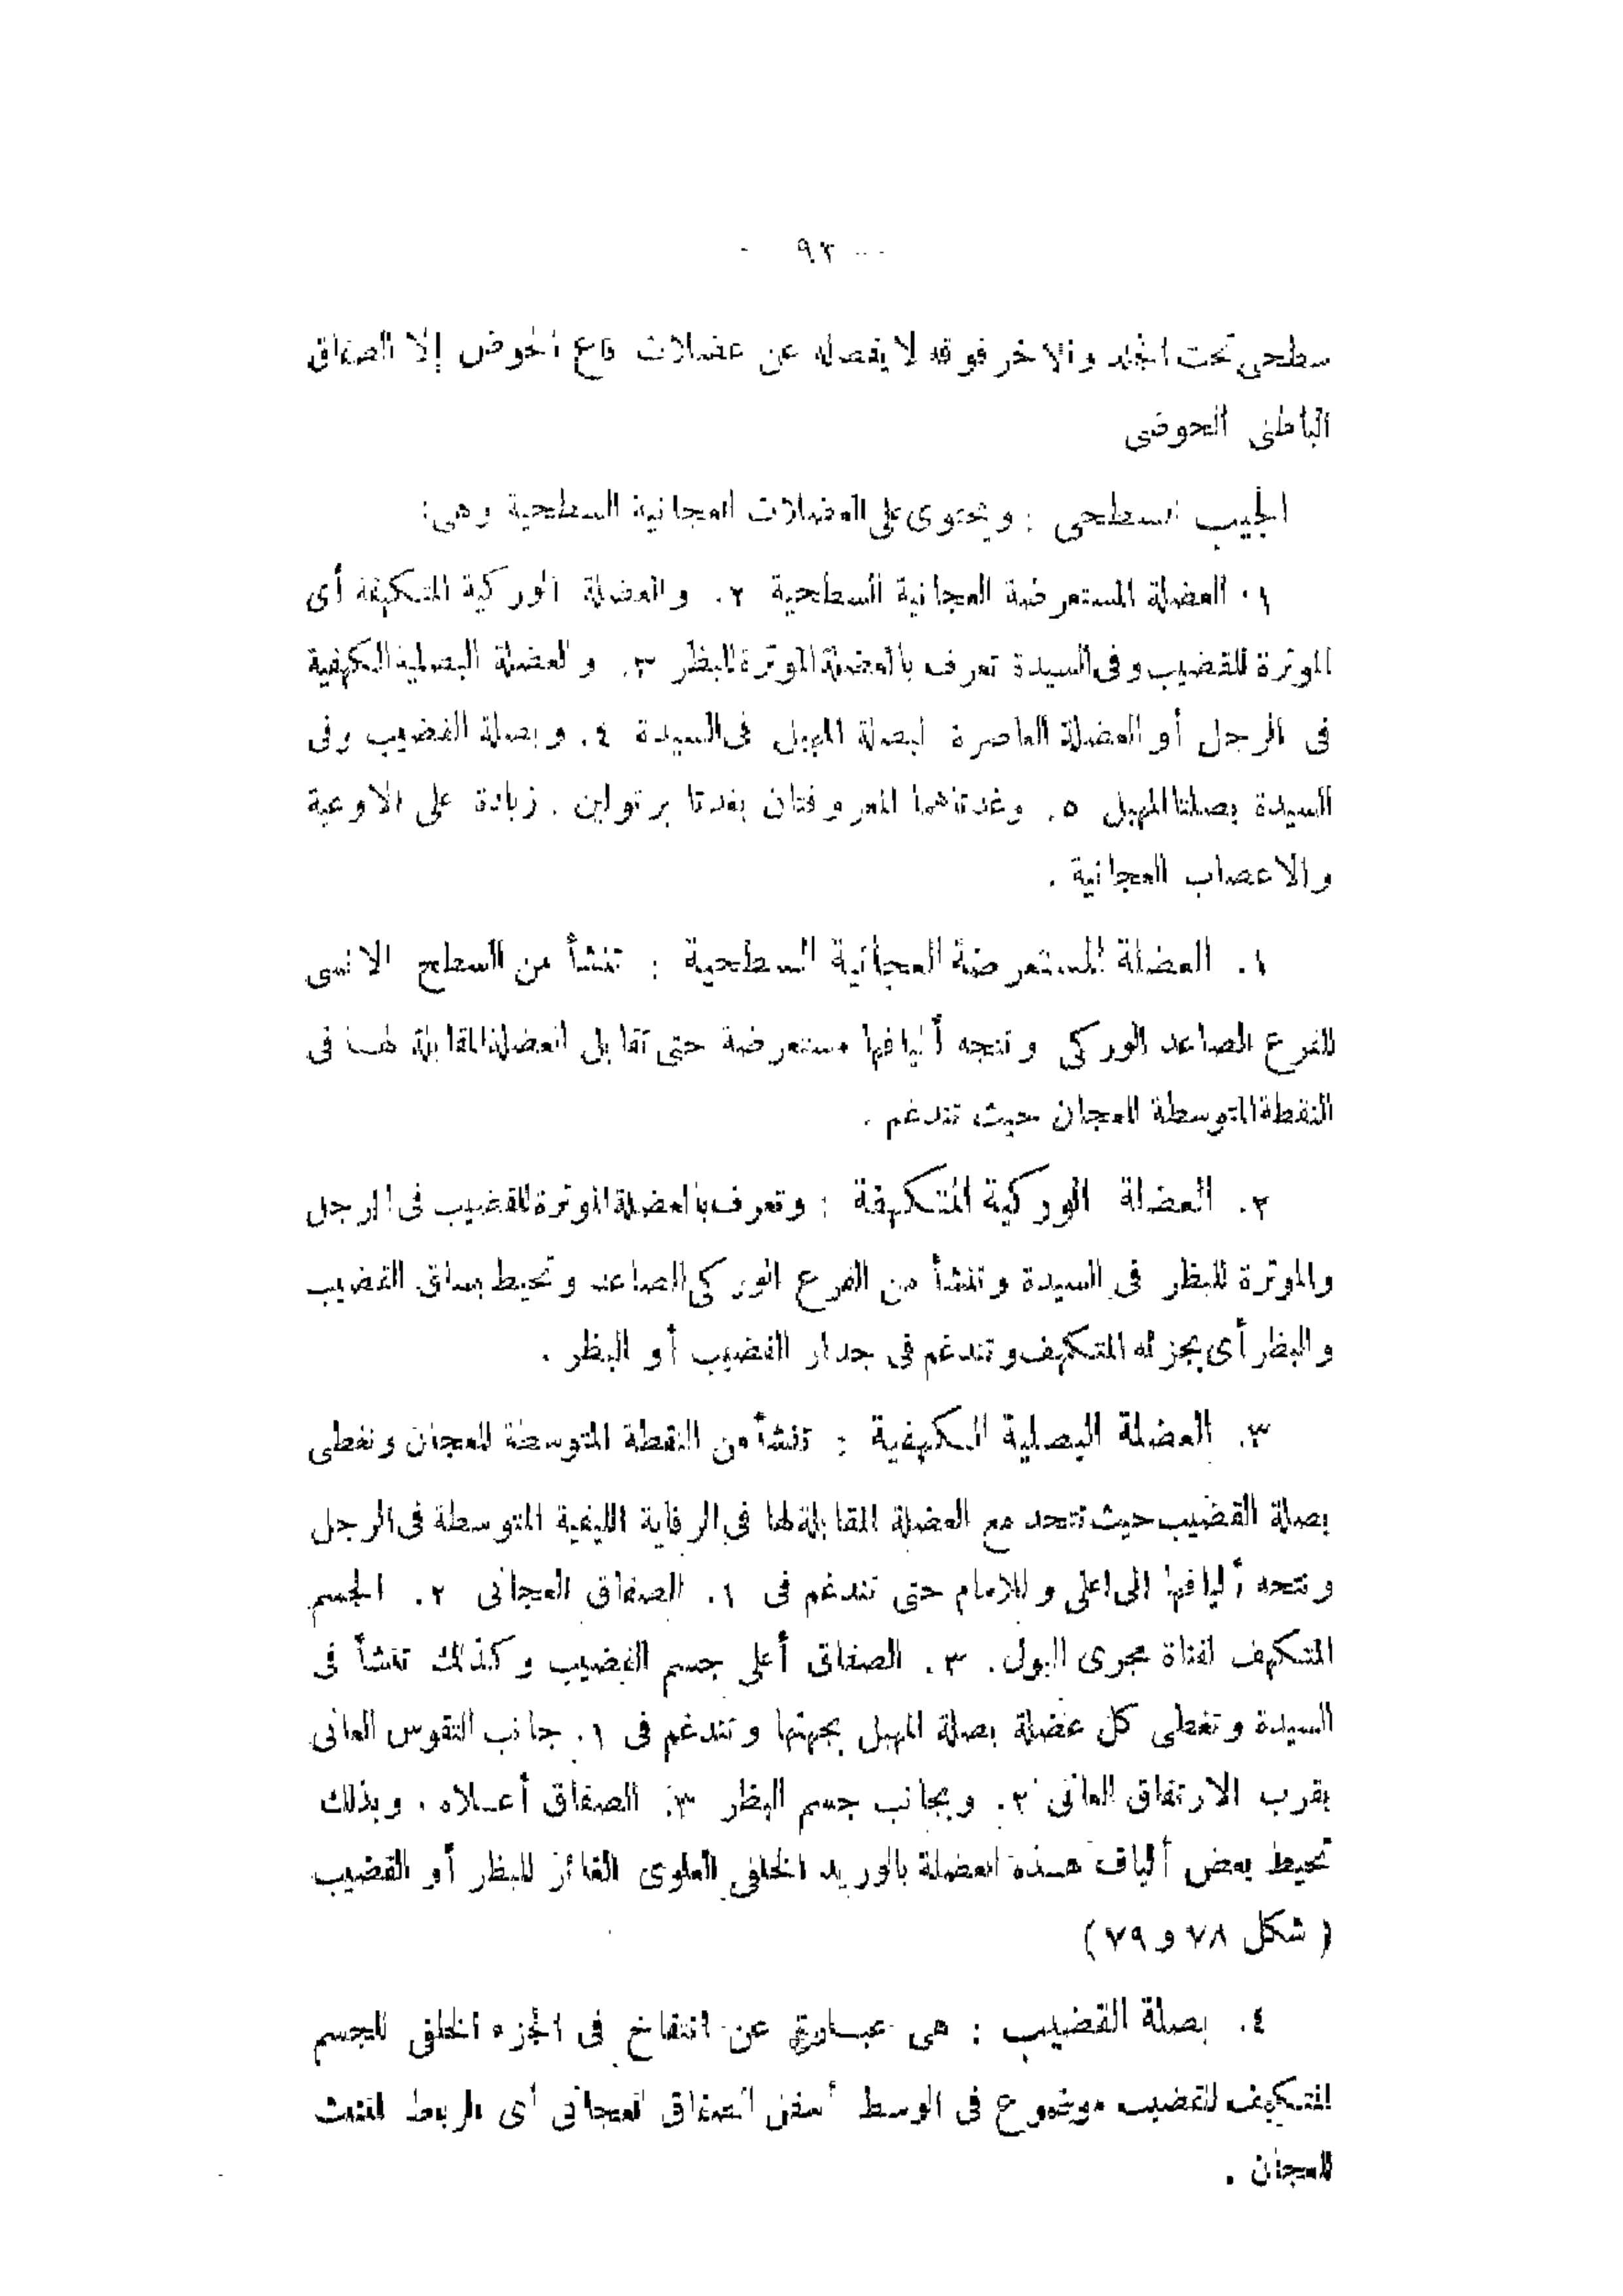 — ٩٣ —
سطحى تحت الجلد والاخر فوقه لا يفصله عن عضلات قاع الحوض إلا الصفاق
الباطنى الحوضى
الجيب السطحى : ويحتوى على العضلات العجانية السطحية وهى:
١. العضلة المستعرضة العجانية السطحية ٢. والعضلة الوركية المتكهفة أى
الموترة للقضيب وفى السيدة تعرف بالعضلة الموترة للبظر ٣. والعضلة البصلية الكهفية
فى الرجل أو العضلة العاصرة لبصلة المهبل فى السيدة ٤. وبصلة القضيب وفى
السيدة بصلتا المهبل ٥. وغدتاهما المعروفتان بغدتا برتولين . زيادة على الاوعية
والاعصاب العجانية .
١. العضلة المستعرضة العجانية السطحية : تنشأ من السطح الانسى
للفرع الصاعد الوركى وتتجه أليافها مستعرضة حتى تقابل العضلة المقابلة لهـا فى
النقطة المتوسطة للعجان حيث تندغم .
٢. العضلة الوركية المتكهفة : وتعرف بالعضلة الموترة للقضيب فى الرجل
والموترة للبظر فى السيدة وتنشأ من الفرع الوركى الصاعد وتحيط بساق القضيب
والبظر أى بجزئه المتكهف وتندغم فى جدار القضيب أو البظر .
٣. العضلة البصلية الكهفية : تنشأ من النقطة المتوسطة للعجان وتغطى
بصلة القضيب حيث تتحد مع العضلة المقابلة لها فى الرفاية الليفية المتوسطة فى الرجل
وتتجه أليافها الى اعلى وللامام حتى تندغم فى ١. الصفاق العجانى ٢. الجسم
المتكهف لقناة مجرى البول . ٣. الصفاق أعلى جسم القضيب وكذلك تنشأ فى
السيدة وتغطى كل عضلة بصلة المهبل بجهتها وتندغم فى ١. جانب التقوس العانى
بقرب الارتفاق العانى ٢. وبجانب جسم البظر ٣. الصفاق أعـلاه . وبذلك
تحيط بعض ألياف هـذه العضلة بالوريد الخلفى العلوى الغائر للبظر أو القضيب
( شكل ٧٨ و ٧٩ )
٤. بصلة القضيب : هى عبـارة عن انتفاخ فى الجزء الخلفى للجسم
المتكهف للقضيب موضوع فى الوسط أسفل الصفاق العجانى أى الرباط المثلث
للعجان .